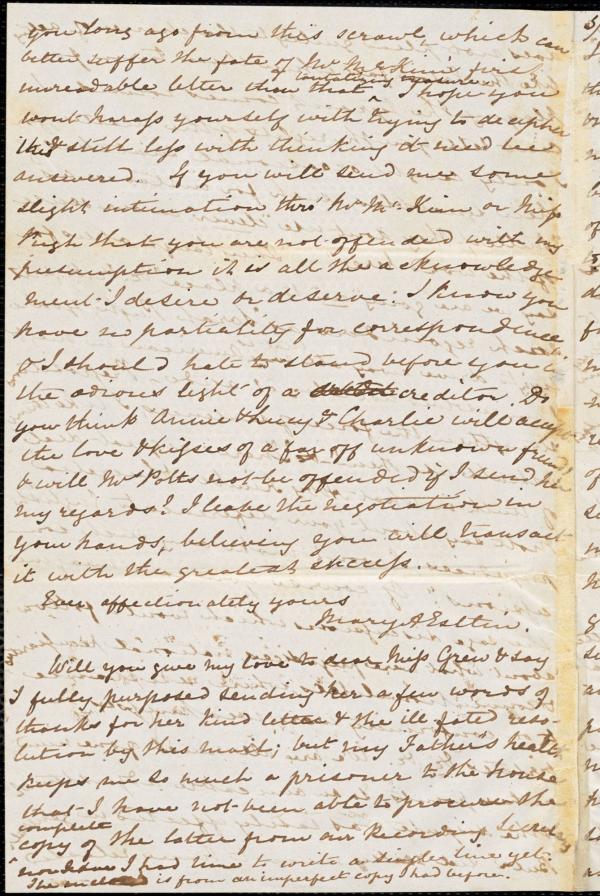 you long ago from this scrawl, which can
better suffer the fate of Mr McKim's first
unreadable letter than that. I hope you
tantalizing treasure
wont harass yourself with trying to decipher
this & still less with thinking it need be
answered. If you will send me some
slight intimation thro' Mr McKim or Miss
Pugh that you are not offended with my
presumption it is all the acknowledge
ment I desire or deserve. I know you
have no partiality for correspondence
& I should hate to stand before you in
the odious light of a creditor. Do
you think Annie & Lucy & Charlie will accept
the love & kisses of a far off unknown friend
& will Mrs Potts not be offended if I send her
my regards? I leave the negotiation in
your hands, believing you will transact
it with the greatest success.
Ever affectionately yours
Mary A Estlin.
Will you give my love to dear Miss Grew & say
I fully purposed sending her a few words of
thanks for her kind letter & the ill fated reso-
lution by this mail; but my Father's health
keeps me so much a prisoner to the house
that I have not been able to procure the
complete
copy of the latter from our Recording Secretary
nor have I had time to write a single line yet.
The is from an imperfect copy I had before.